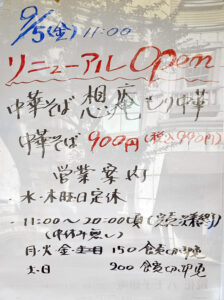 9/5(金) 11:00
リニューアル Open
中華そば 想庵 もり中華
中華そば 900円(税込990円)
営業案内
・水・木曜日定休
・11:00～20:00頃(完売次第終了)
(中休み無し)
月・火・金 150食売り切れ
土・日 200食売り切れ